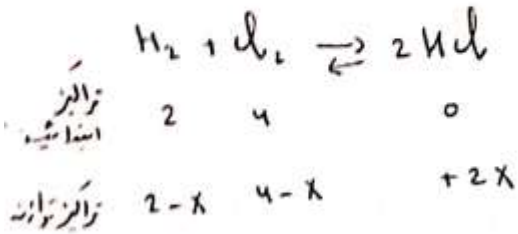 H₂ + Cl₂ ⇌ 2 HCl
تراكيز
ابتدائية 2 4 0
تراكيز توازنه 2 - x 4 - x + 2x